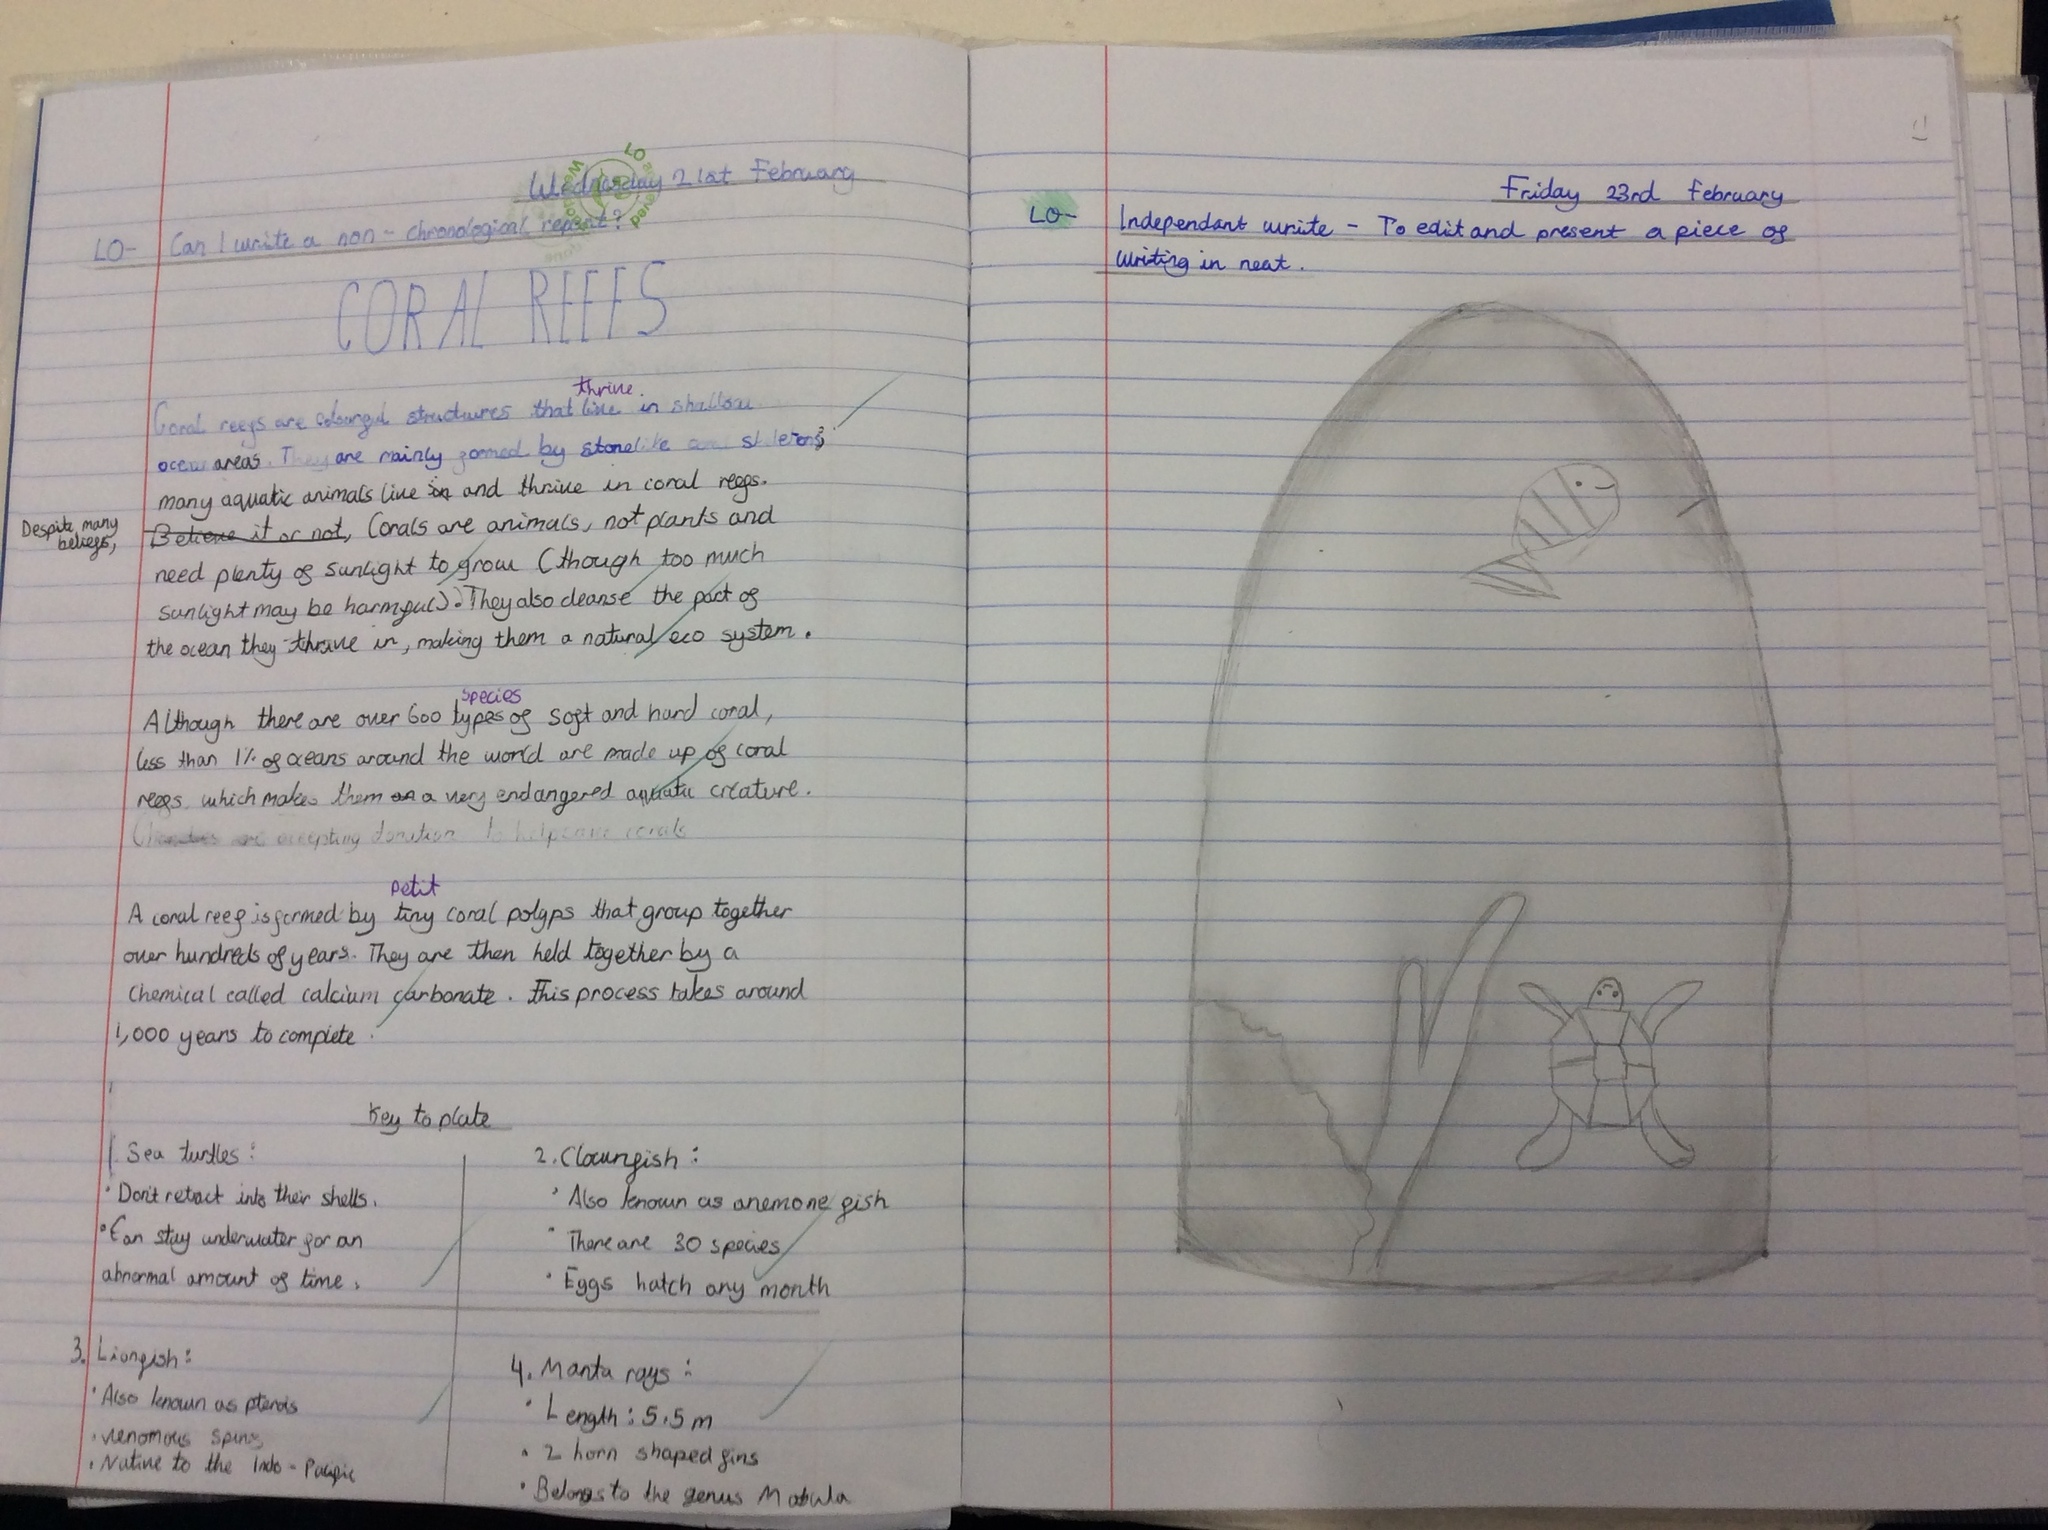 Wednesday 21st February
LO- Can I write a non-chronological report?
CORAL REEFS
thrive
Coral reefs are colourful structures that live in shallow
ocean areas. They are mainly formed by stonelike coral skeletons;
many aquatic animals live in and thrive in coral reefs.
Despite many
beliefs,
Believe it or not, Corals are animals, not plants and
need plenty of sunlight to grow (though too much
sunlight may be harmful). They also cleanse the part of
the ocean they thrive in, making them a natural eco system.
species
Although there are over 600 types of soft and hard coral,
less than 1% of oceans around the world are made up of coral
reefs which makes them a very endangered aquatic creature.
Charities are accepting donation to help save corals
petit
A coral reef is formed by tiny coral polyps that group together
over hundreds of years. They are then held together by a
chemical called calcium carbonate. This process takes around
1,000 years to complete.
Key to plate
1. Sea turtles:
• Don't retract into their shells.
• Can stay underwater for an
abnormal amount of time.
2. Clownfish:
• Also known as anemone fish
• There are 30 species
• Eggs hatch any month
3. Lionfish:
• Also known as pterois
• venomous spines
• Native to the Indo-Pacific
4. Manta rays:
• Length: 5.5m
• 2 horn shaped fins
• Belongs to the genus Mobula
Friday 23rd February
LO- Independant write - To edit and present a piece of
writing in neat.